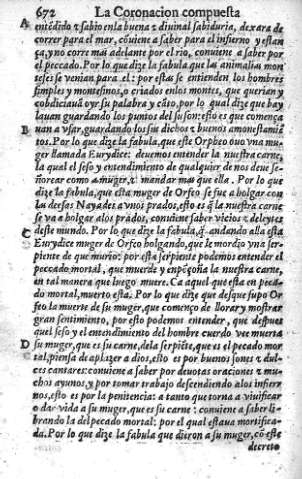 672 La Coronacion compuesta
A encẽdido & sabio en la buena & diuinal sabiduria, dexara de
correr para el mar, cõuiene a saber para el infierno y estan
ça, y no corre mas adelante por el rio, conuiene a saber por
el peccado. Por lo que dize la fabula que las animalias mon
teses se venian para el: por estas se entienden los hombres
simples y montesinos, o criados en los montes, que querian y
cobdiciauã oyr su palabra y cãto, por lo qual dize que bay
lauan guardando los puntos del su son: esto es que comença
B uan a vsar, guardando los sus dichos & buenos amonestamiẽ
tos. Por lo que dize la fabula, que este Orpheo ouo vna mu-
ger llamada Eurydice: deuemos entender la nuestra carne,
la qual el seso y entendimiento de qualquier de nos deue se-
ñorear como a muger, & mandar mas que ella. Por lo que
dize la fabula, que esta muger de Orfeo se fue a holgar con
las deesas Nayades a vnos prados, esto es q̃ la nuestra carne
se va a holgar a los prados, conuiene saber vicios & deleytes
deste mundo. Por lo que dize la fabula, q̃ andando alla esta
C Eurydice muger de Orfeo holgando, que le mordio vna ser-
piente de que murio: por esta serpiente podemos entender el
peccado mortal, que muerde y enpõçoña la nuestra carne,
en tal manera que luego muere. Ca aquel que esta en peca-
do mortal, muerto esta. Por lo que dize que desque supo Or
feo la muerte de su muger, que començo de llorar y mostrar
gran sentimiento, por esto podemos entender, que despues
quel seso y el entendimiento del hombre cuerdo vee muerta
D su muger, que es su carne, de la serpiẽte, que es el pecado mor
tal, piensa de aplazer a dios, esto es por buenos sones & dul-
ces cantares: conuiene a saber por deuotas oraciones & mu-
chos ayunos, y por tomar trabajo descendiendo a los infier-
nos, esto es por la penitencia: a tanto que torna a viuificar
o dar vida a su muger, que es su carne: conuiene a saber li-
brando la del pecado mortal; por el qual estaua mortifica-
da. Por lo que dize la fabula que dieron a su muger, cõ este
decreto